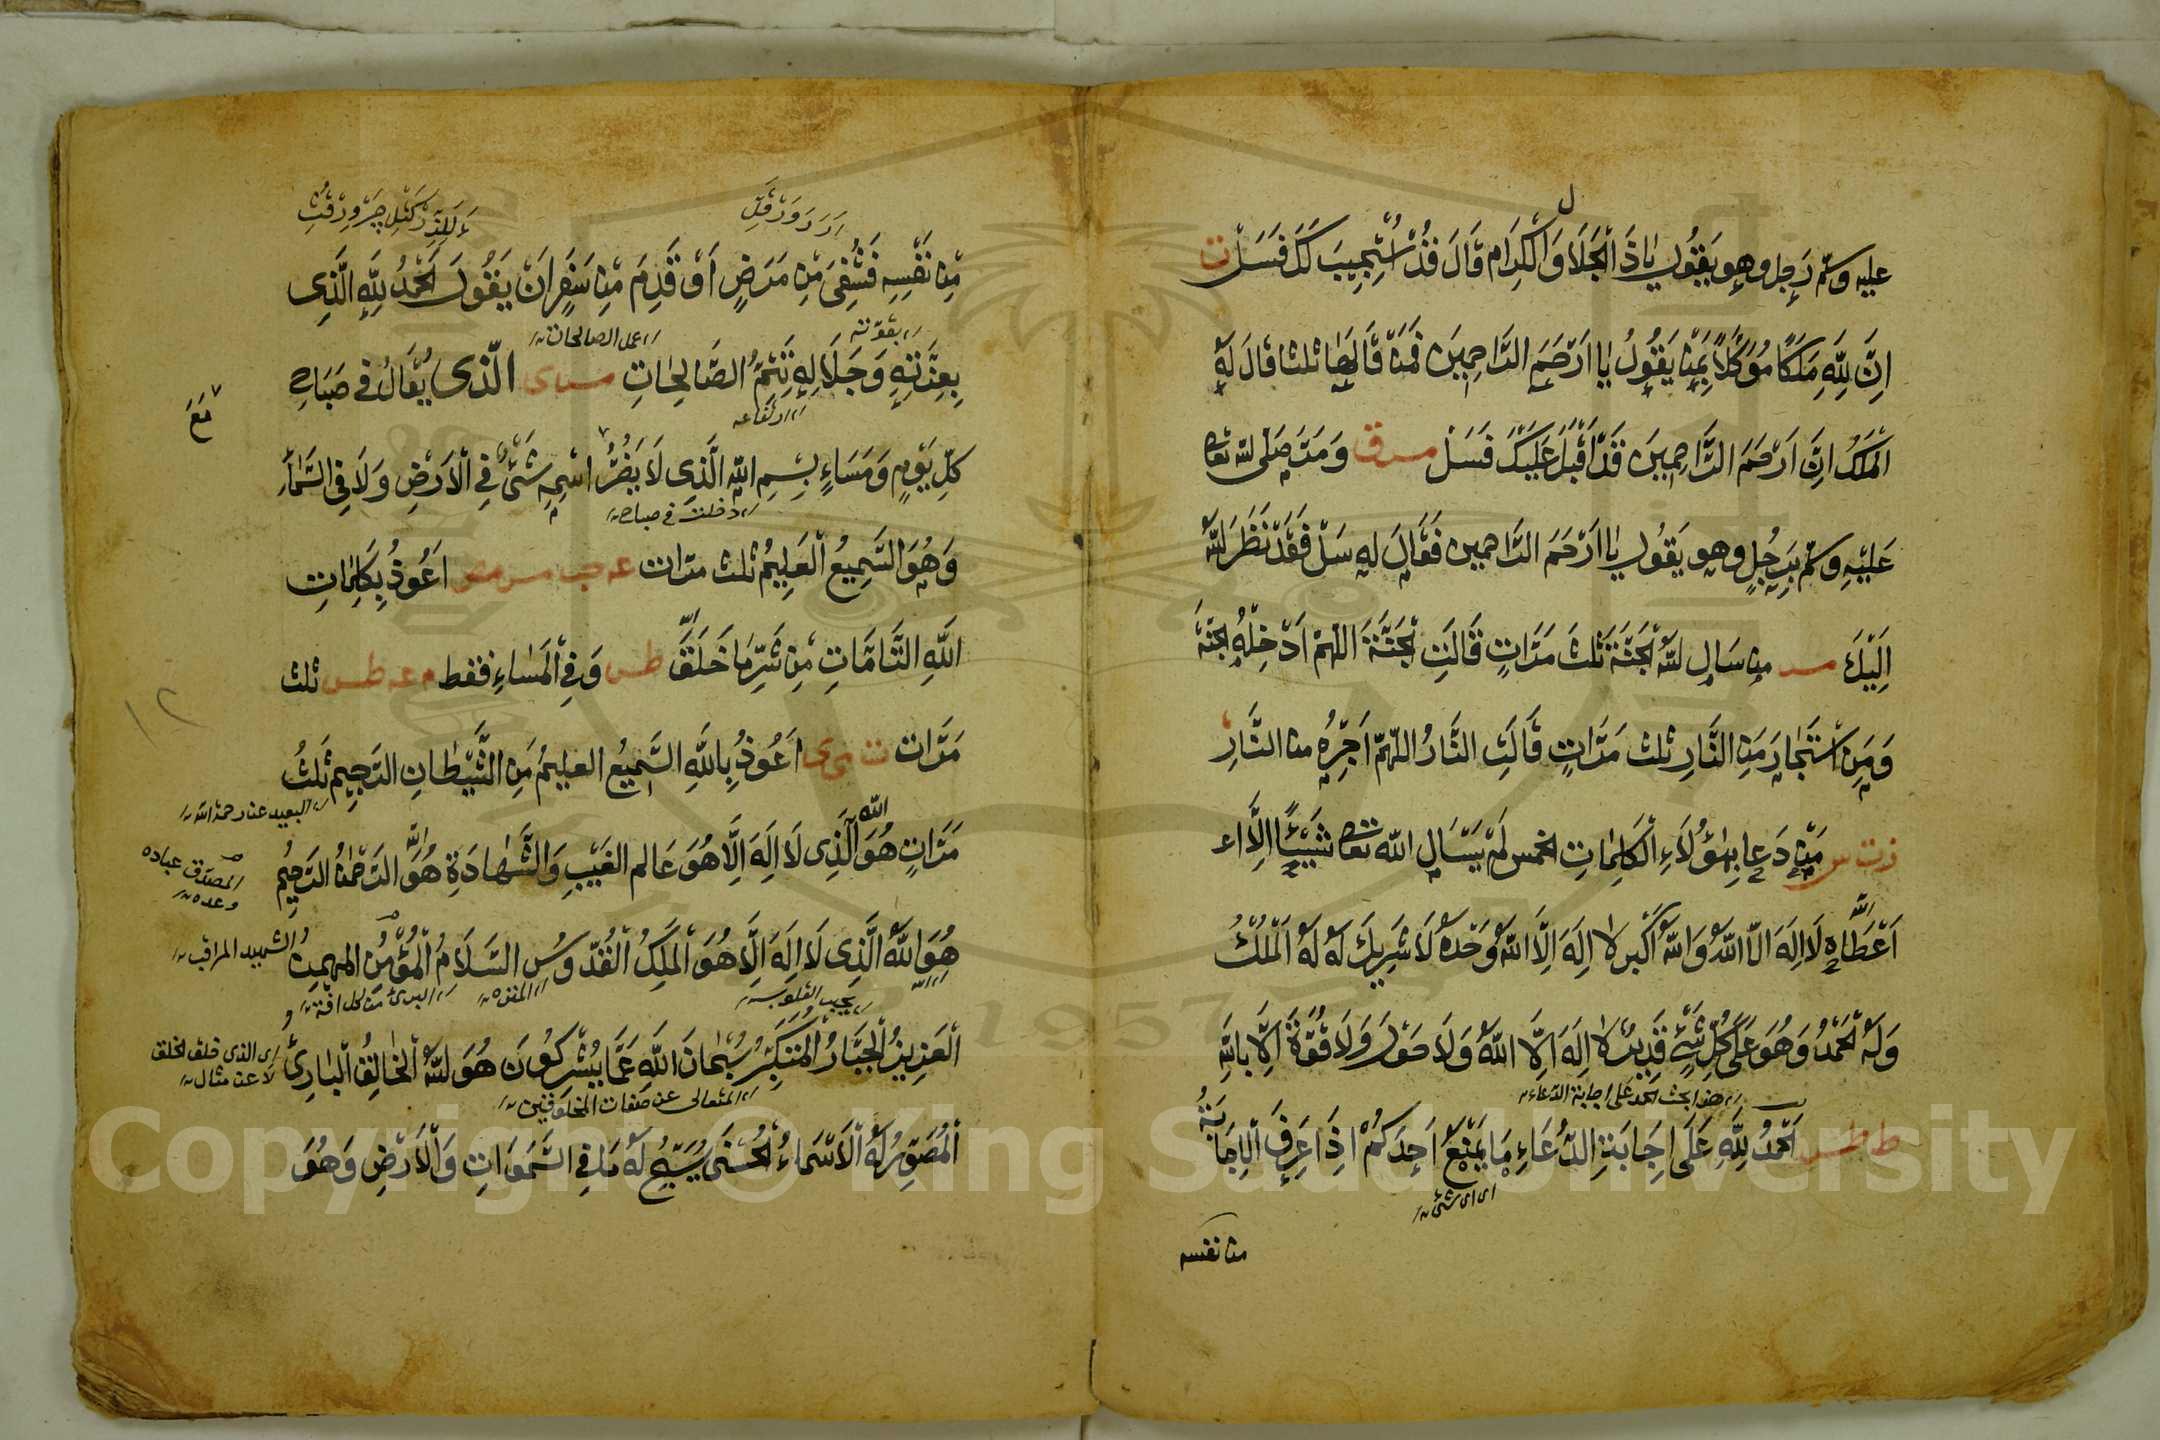 عليه وسلم رجل وهو يقول يا ذا الجلال والاكرام قال قد استجيب لك فسل ت
ان لله ملكا موكلا بمن يقول يا ارحم الراحمين فمن قالها ثلثا قال له
الملك ان ارحم الراحمين قد اقبل عليك فسل مس ق ومر صلى الله تعا
عليه وسلم برجل وهو يقول يا ارحم الراحمين فقال له سل فقد نظر الله
اليك مس من سال الله الجنة ثلث مرات قالت الجنة اللهم ادخله الجنة
ومن استجار من النار ثلث مرات قالت النار اللهم اجره من النار
من دعا بهؤلاء الكلمات الخمس لم يسال الله تعا شيئا الا
اعطاه لا اله الا الله والله اكبر لا اله الا الله وحده لا شريك له له الملك
وله الحمد وهو على كل شئ قدير لا اله الا الله ولا حول ولا قوة الا بالله
هذا بحث الحمد على اجابة الدعاء
ط طس الحمد لله على اجابة الدعاء ما يمنع احدكم اذا عرف الاجابة
اى اى شئ
من نفسه
من نفسه فشفى من مرض او قدم من سفر ان يقول الحمد لله الذى
بقوته
عمل الصالحات
بعزته وجلاله تتم الصالحات مس ى الذى يقال فى صباح
كل يوم ومساء بسم الله الذى لا يضر اسمه شئ فى الارض ولا فى السماء
دخلت فى صباح
وهو السميع العليم ثلث مرات عه حب مس مص اعوذ بكلمات
الله التامات من شر ما خلق طس وفى المساء فقط م عه طس ثلث
مرات ت ى اعوذ بالله السميع العليم من الشيطان الرجيم ثلث
البعيد عن رحمة الله
مرات هو الله الذى لا اله الا هو عالم الغيب والشهادة هو الرحمن الرحيم
المصدق عباده
وعده
هو الله الذى لا اله الا هو الملك القدوس السلام المؤمن المهيمن
الشهيد المراقب
المنزه
البرئ من كل افة
العزيز الجبار المتكبر سبحان الله عما يشركون هو الله الخالق البارئ
اى الذى خلق الخلق
لا عن مثال
المتعالى عن صفات المخلوقين
المصور له الاسماء الحسنى يسبح له ما فى السموات والارض وهو
١٢
1957
Copyright © King Saud University